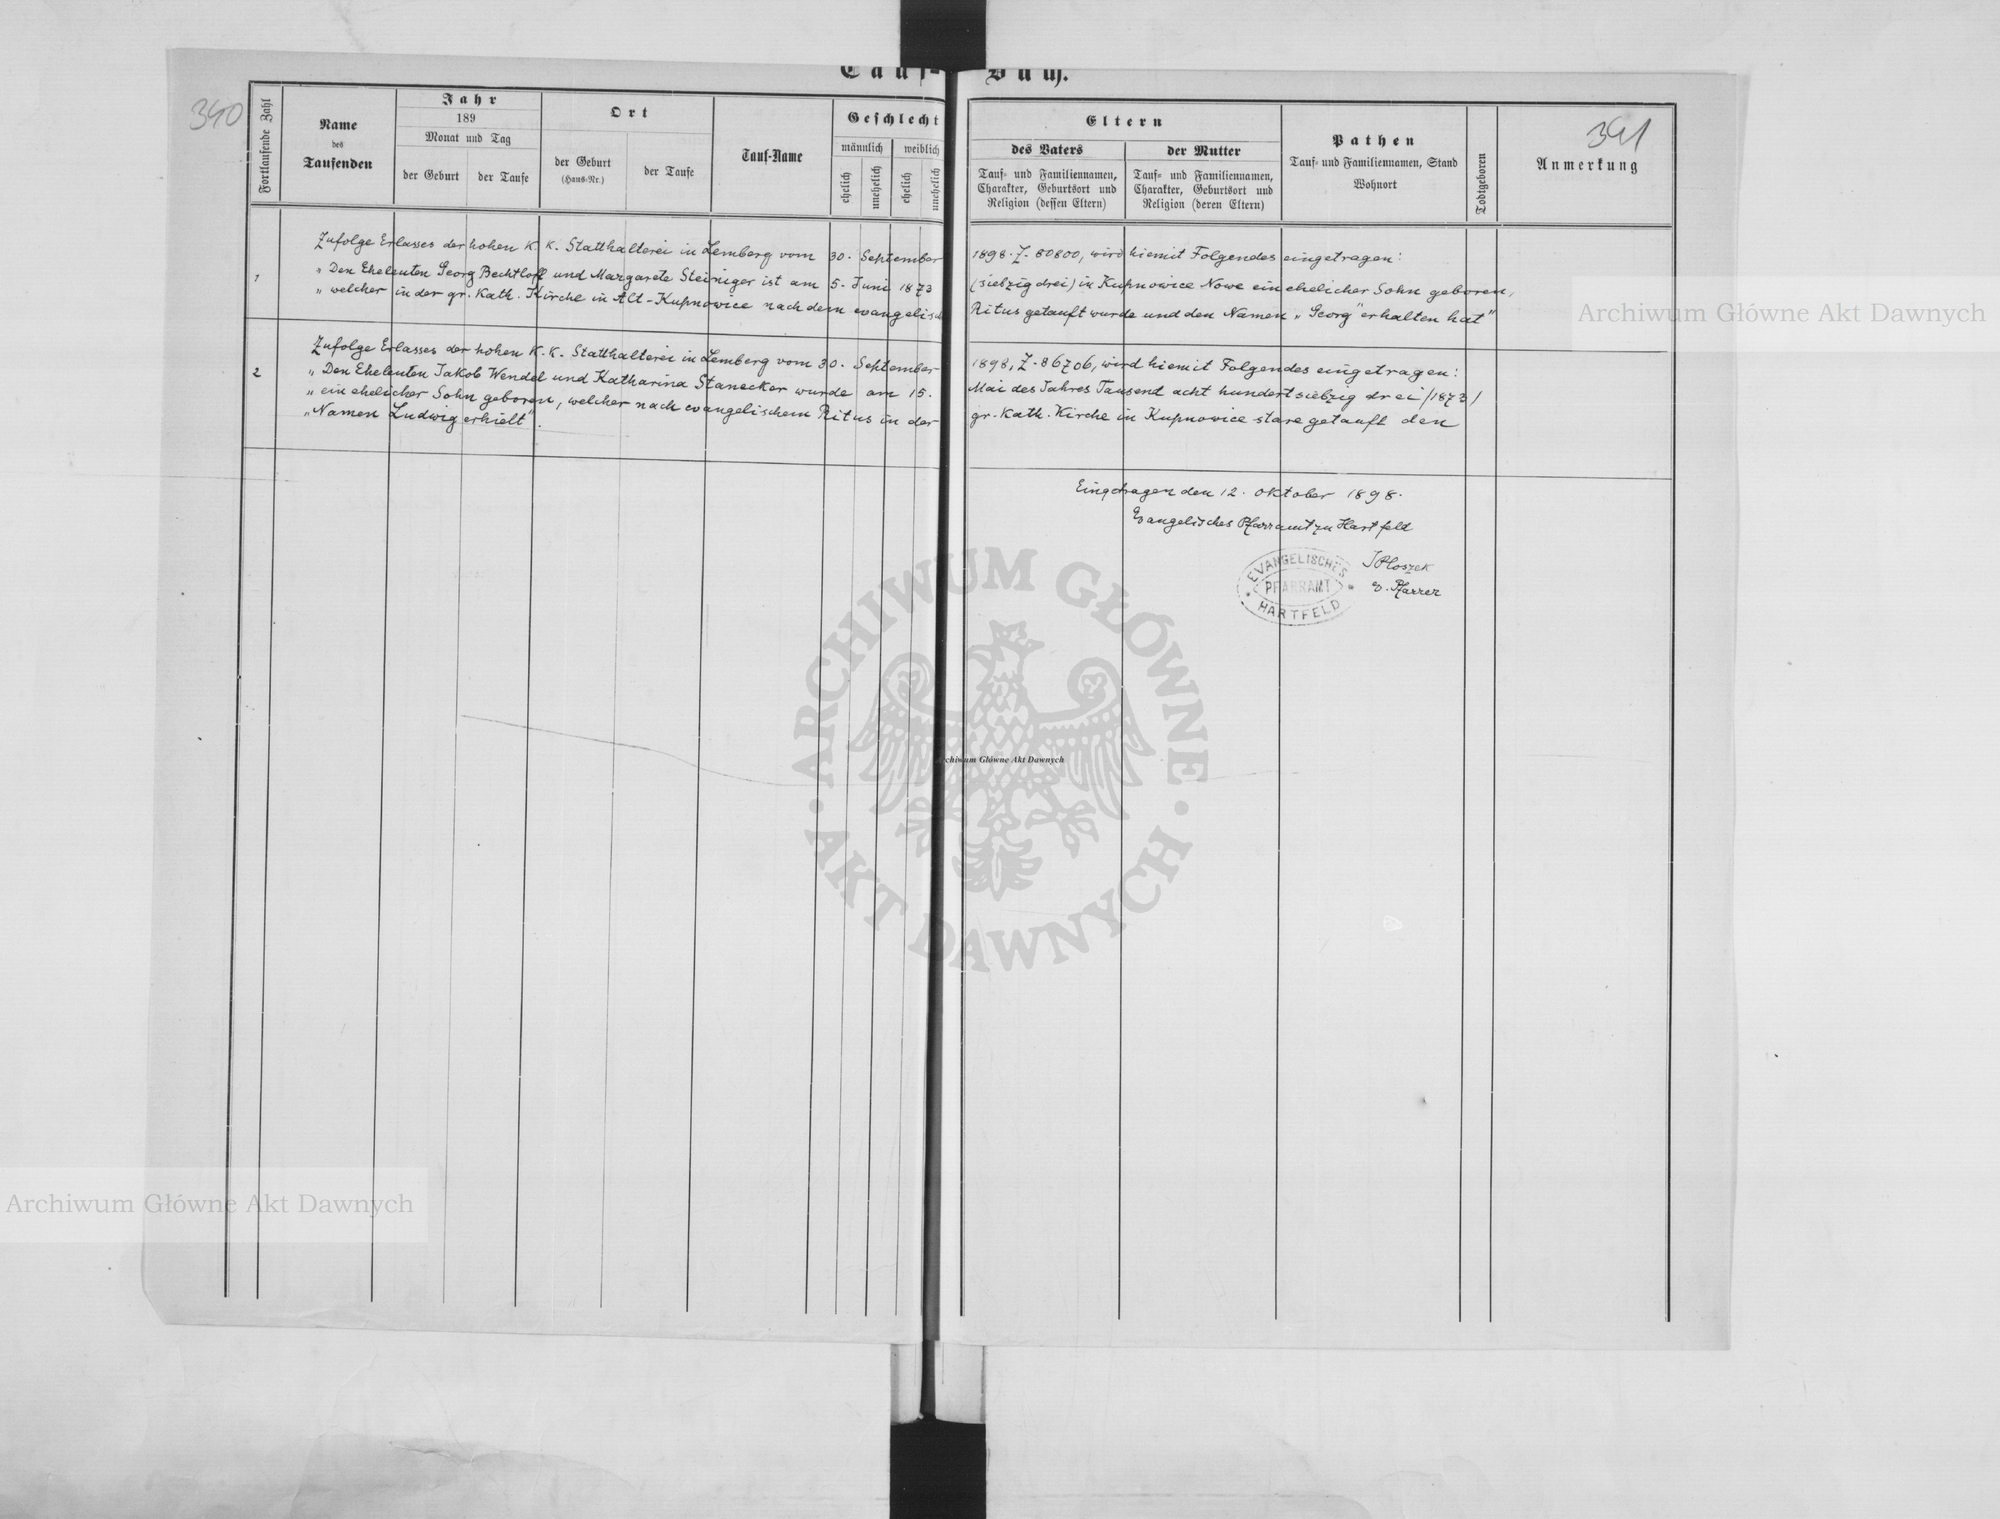 Tauf-Buch.
340
341
Fortlaufende Zahl
Name
des
Taufenden
Jahr
189
Monat und Tag
der Geburt
der Taufe
Ort
der Geburt
(Haus-Nr.)
der Taufe
Tauf-Name
Geschlecht
männlich
weiblich
ehelich
unehelich
ehelich
unehelich
Eltern
des Vaters
Tauf- und Familiennamen,
Charakter, Geburtsort und
Religion (dessen Eltern)
der Mutter
Tauf- und Familiennamen,
Charakter, Geburtsort und
Religion (deren Eltern)
Pathen
Tauf- und Familiennamen, Stand
Wohnort
Todtgeboren
Anmerkung
1
Zufolge Erlasses der hohen K. K. Statthalterei in Lemberg vom 30. September 1898. Z. 80800, wird hiemit Folgendes eingetragen:
„Den Eheleuten Georg Bechtloff und Margarete Steiniger ist am 5. Juni 1873 (siebzig drei) in Kupnowice Nowe ein ehelicher Sohn geboren,
„welcher in der gr. Kath. Kirche in Alt-Kupnowice nach dem evangelisch Ritus getauft wurde und den Namen „Georg" erhalten hat"
2
Zufolge Erlasses der hohen K. K. Statthalterei in Lemberg vom 30. September 1898, Z. 86706, wird hiemit Folgendes eingetragen:
„Den Eheleuten Jakob Wendel und Katharina Stanecker wurde am 15. Mai des Jahres Tausend acht hundert siebzig drei /1873/
„ein ehelicher Sohn geboren, welcher nach evangelischem Ritus in der gr. Kath. Kirche in Kupnowice stare getauft den
„Namen Ludwig erhielt".
Eingetragen den 12. Oktober 1898.
Evangelisches Pfarramt zu Hartfeld
EVANGELISCHES
PFARRAMT
HARTFELD
JPloszek
ev. Pfarrer
Archiwum Główne Akt Dawnych
ARCHIWUM GŁÓWNE
AKT DAWNYCH
Archiwum Główne Akt Dawnych
Archiwum Główne Akt Dawnych